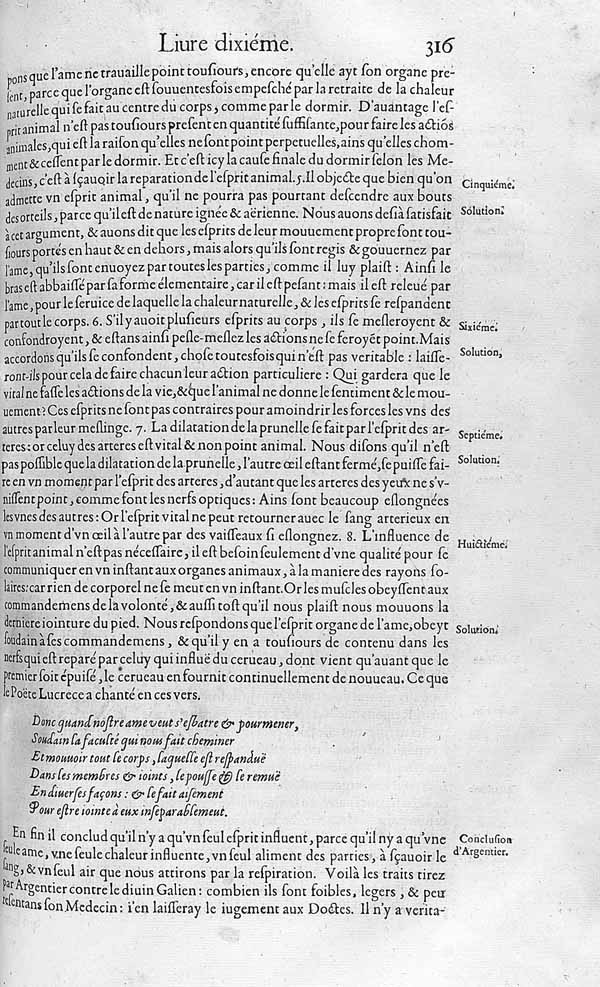 Liure dixiéme. 316
pons que l'ame ne trauaille point tousiours, encore qu'elle ayt son organe pre-
sent, parce que l'organe est souuentesfois empesché par la retraite de la chaleur
naturelle qui se fait au centre du corps, comme par le dormir. D'auantage l'es-
prit animal n'est pas tousiours present en quantité suffisante, pour faire les actiõs
animales, qui est la raison qu'elles ne sont point perpetuelles, ains qu'elles chom-
ment & cessent par le dormir. Et c'est icy la cause finale du dormir selon les Me-
decins, c'est à sçauoir la reparation de l'esprit animal. 5. Il objecte que bien qu'on
Cinquiéme.
admette vn esprit animal, qu'il ne pourra pas pourtant descendre aux bouts
des orteils, parce qu'il est de nature ignée & aërienne. Nous auons desià satisfait
Solution.
à cet argument, & auons dit que les esprits de leur mouuement propre sont tou-
siours portés en haut & en dehors, mais alors qu'ils sont regis & gouuernez par
l'ame, qu'ils sont enuoyez par toutes les parties, comme il luy plaist : Ainsi le
bras est abbaissé par sa forme élementaire, car il est pesant : mais il est releué par
l'ame, pour le seruice de laquelle la chaleur naturelle, & les esprits se respandent
par tout le corps. 6. S'il y auoit plusieurs esprits au corps, ils se mesleroyent &
Sixiéme.
confondroyent, & estans ainsi pesle-meslez les actions ne se feroyẽt point. Mais
accordons qu'ils se confondent, chose toutesfois qui n'est pas veritable : laisse-
Solution,
ront-ils pour cela de faire chacun leur action particuliere : Qui gardera que le
vital ne fasse les actions de la vie, & que l'animal ne donne le sentiment & le mou-
uement? Ces esprits ne sont pas contraires pour amoindrir les forces les vns des
autres par leur meslinge. 7. La dilatation de la prunelle se fait par l'esprit des ar-
Septiéme.
teres : or celuy des arteres est vital & non point animal. Nous disons qu'il n'est
pas possible que la dilatation de la prunelle, l'autre œil estant fermé, se puisse fai-
Solution.
re en vn moment par l'esprit des arteres, d'autant que les arteres des yeux ne s'v-
nissent point, comme font les nerfs optiques : Ains sont beaucoup eslongnées
les vnes des autres : Or l'esprit vital ne peut retourner auec le sang arterieux en
vn moment d'vn œil à l'autre par des vaisseaux si eslongnez. 8. L'influence de
Huictiéme.
l'esprit animal n'est pas nécessaire, il est besoin seulement d'vne qualité pour se
communiquer en vn instant aux organes animaux, à la maniere des rayons so-
laires : car rien de corporel ne se meut en vn instant. Or les muscles obeyssent aux
commandemens de la volonté, & aussi tost qu'il nous plaist nous mouuons la
derniere iointure du pied. Nous respondons que l'esprit organe de l'ame, obeyt
Solution.
soudain à ses commandemens, & qu'il y en a tousiours de contenu dans les
nerfs qui est reparé par celuy qui influë du cerueau, dont vient qu'auant que le
premier soit épuisé, le cerueau en fournit continuellement de nouueau. Ce que
le Poëte Lucrece a chanté en ces vers.
Donc quand nostre ame veut s'esbatre & pourmener,
Soudain sa faculté qui nous fait cheminer
Et mouuoir tout le corps, laquelle est respanduë
Dans les membres & ioints, se pousse & se remuë
En diuerses façons : & se fait aisement
Pour estre iointe à eux inseparablement.
En fin il conclud qu'il n'y a qu'vn seul esprit influent, parce qu'il ny a qu'vne
Conclusion
seule ame, vne seule chaleur influente, vn seul aliment des parties, à sçauoir le
d'Argentier.
sang, & vn seul air que nous attirons par la respiration. Voilà les traits tirez
par Argentier contre le diuin Galien : combien ils sont foibles, legers, & peu
resentans son Medecin : i'en laisseray le iugement aux Doctes. Il n'y a verita-